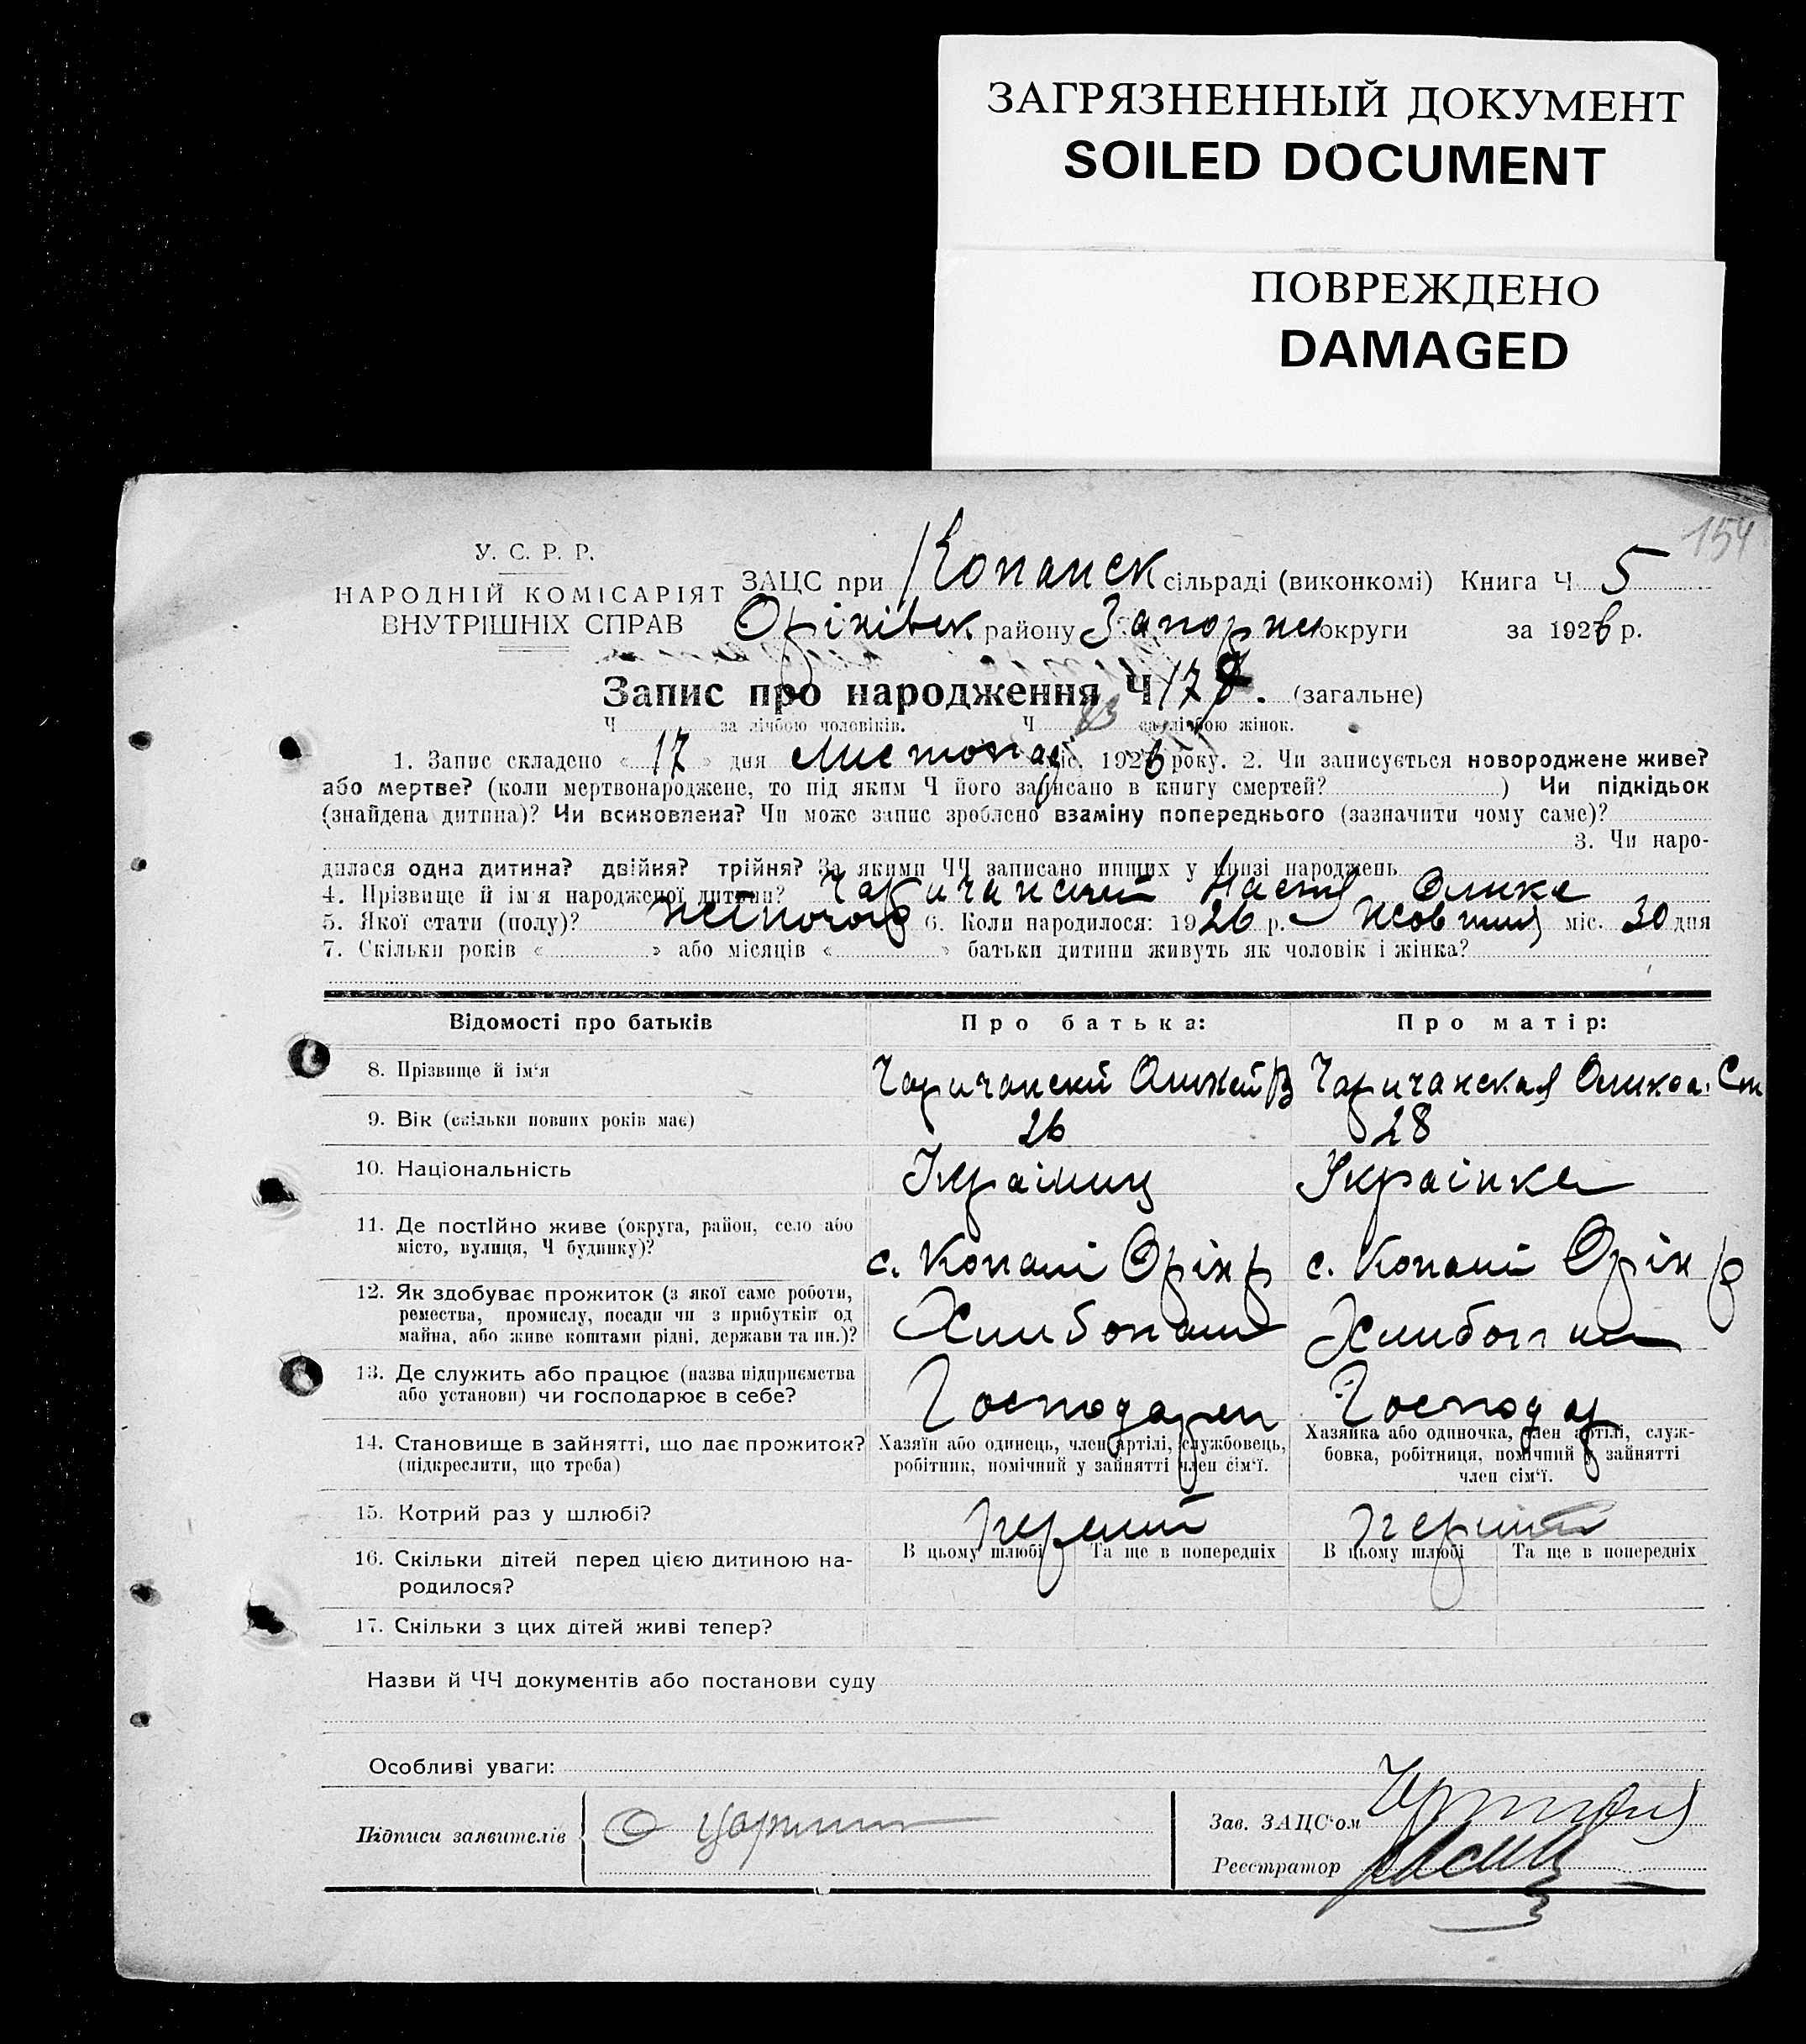 ЗАГРЯЗНЕННЫЙ ДОКУМЕНТ
SOILED DOCUMENT
ПОВРЕЖДЕНО
DAMAGED
154
У. С. Р. Р.
НАРОДНІЙ КОМІСАРІЯТ
ВНУТРІШНІХ СПРАВ
ЗАЦС при Копанск сільраді (виконкомі) Книга Ч 5
Оріхівск району Запоріж округи за 1926 р.
Запис про народження Ч 178. (загальне)
Ч за лічбою чоловіків. Ч 83 за лічбою жінок.
1. Запис складено « 17 » дня Листопад міс. 1926 року. 2. Чи записується новороджене живе?
або мертве? (коли мертвонароджене, то під яким Ч його записано в книгу смертей? ) Чи підкідьок
(знайдена дитина)? Чи всиновлена? Чи може запис зроблено взаміну попереднього (зазначити чому саме)?
3. Чи наро-
дилася одна дитина? двійня? трійня? За якими ЧЧ записано инших у книзі народжень
4. Прізвище й ім'я народженої дитини? Чаричанский Настя
5. Якої стати (полу)? жіночого 6. Коли народилося: 1926 р. Жовтня міс. 30 дня
7. Скільки років « » або місяців « » батьки дитини живуть як чоловік і жінка?
Відомості про батьків Про батька: Про матір:
8. Прізвище й ім'я Чаричанский В Чаричанская Ст
9. Вік (скільки повних років має) 26 28
10. Національність Українц Українка
11. Де постійно живе (округа, район, село або
місто, вулиця, Ч будинку)? с. Копані Оріх р с. Копані Оріх р
12. Як здобуває прожиток (з якої саме роботи,
ремества, промислу, посади чи з прибутків од
майна, або живе коштами рідні, держави та ин.)? Хлибопаш Хлибопаш
13. Де служить або працює (назва підприємства
або установи) чи господарює в себе? Господар
14. Становище в зайнятті, що дає прожиток?
(підкреслити, що треба)
Хазяїн або одинець, член артілі, службовець,
робітник, помічний у зайнятті член сім'ї.
Хазяйка або одиночка, член артілі, служ-
бовка, робітниця, помічний у зайнятті
член сім'ї.
15. Котрий раз у шлюбі? перший перший
16. Скільки дітей перед цією дитиною на-
родилося?
В цьому шлюбі Та ще в попередніх В цьому шлюбі Та ще в попередніх
17. Скільки з цих дітей живі тепер?
Назви й ЧЧ документів або постанови суду
Особливі уваги:
Підписи заявителів
Зав. ЗАЦС'ом
Реєстратор